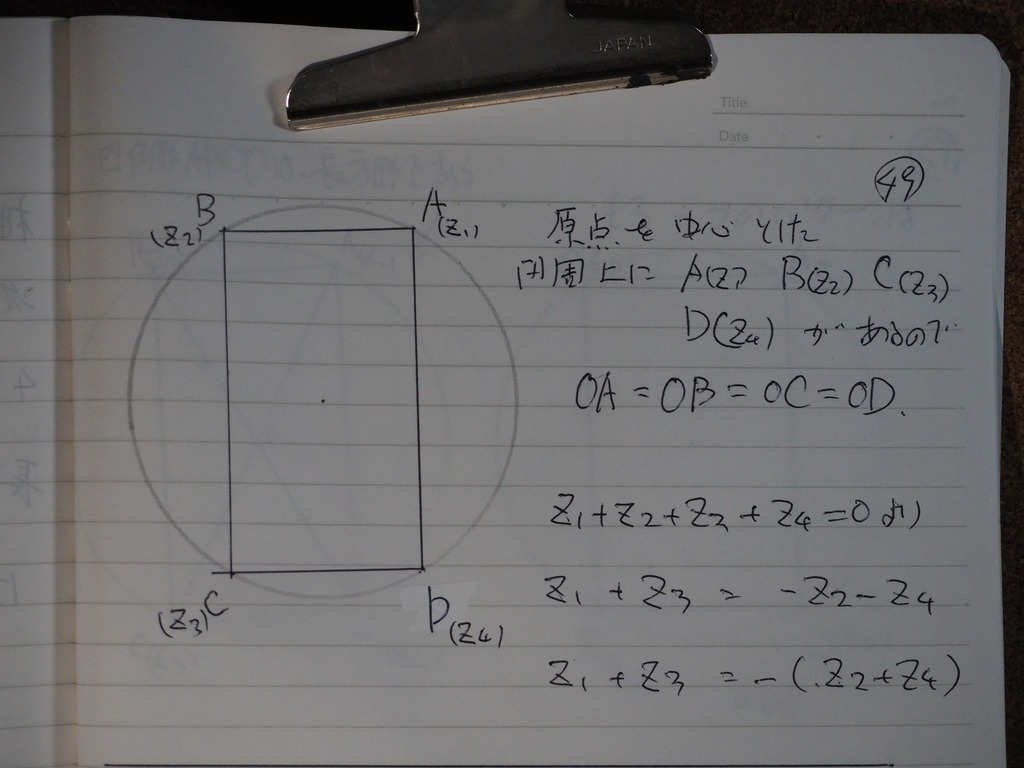 JAPAN
Title
Date
49
B
(Z2)
A
(Z1)
原点を中心とした
円周上に A(Z1) B(Z2) C(Z3)
D(Z4) があるので
OA = OB = OC = OD.
Z1+Z2+Z3+Z4=0より
Z1+Z3 = -Z2-Z4
Z1+Z3 = -(Z2+Z4)
(Z3)C
D(Z4)